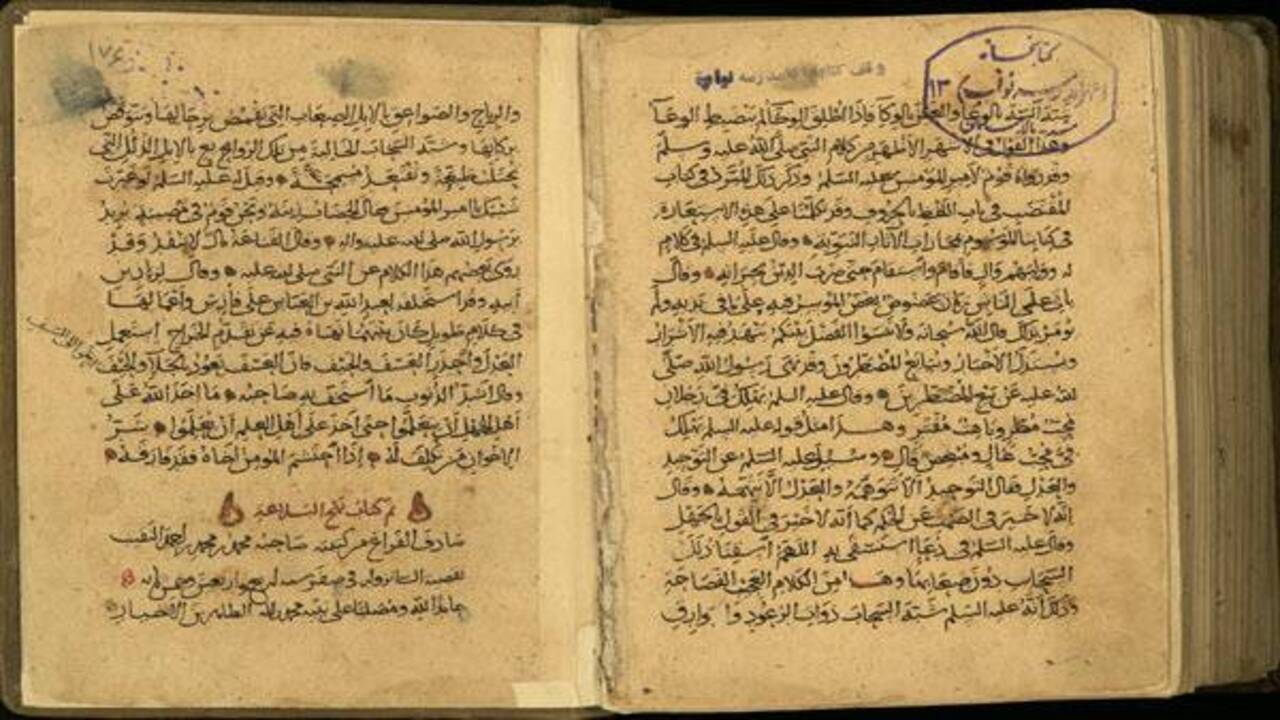 كتابخانه
١٣
وقف كتابخانه مدرسه نواب
يشبه السه بالوعاء والعين بالوكا فاذا اطلق الوكا لم ينضبط الوعا
وهذا القول في الاشهر الاظهر من كلام النبي صلى الله عليه وسلم
وقد رواه قوم لامير المؤمنين عليه السلم وذكر ذلك المبرد في كتاب
المقتضب في باب اللفظ بالحروف وقد تكلمنا على هذه الاستعارة
في كتابنا الموسوم بمجازات الآثار النبوية وقال عليه السلم في كلام
له ووليهم وال فاقام واستقام حتى ضرب الدين بجرانه وقال
ياتي على الناس زمان عضوض يعض الموسر فيه على ما في يديه ولم
يومر بذلك قال الله سبحانه ولا تنسوا الفضل بينكم تنهد فيه الاشرار
ويستذل الاخيار ويبايع المضطرون وقد نهى رسول الله صلى
الله عليه عن بيع المضطرين وقال عليه السلم يهلك في رجلان
محب مطر وباهت مفتر وهذا مثل قوله عليه السلم يهلك
في محب غال ومبغض قال وسئل عليه السلم عن التوحيد
والعدل فقال التوحيد الا تتوهمه والعدل الا تتهمه وقال
انه لا خير في الصمت عن الحكم كما انه لا خير في القول بالجهل
وقال عليه السلم في دعاء استسقى به اللهم اسقنا ذلل
السحاب دون صعابها وهذا من الكلام العجيب الفصاحة
وذلك انه عليه السلم شبه السحاب ذوات الرعود والبوارق
والرياح والصواعق بالابل الصعاب التي تقمص برحالها وتتوقص
بركابها وشبه السحاب الخالية من تلك الروابع بالابل الذلل التي
تحتلب طيعة وتقتعد مسمحة وقيل له عليه السلم لو غيرت
شيبك يا امير المؤمنين فقال الخضاب زينة ونحن قوم في مصيبة يريد
برسول الله صلى الله عليه واله وقال القناعة مال لا ينفد وقد
روى بعضهم هذا الكلام عن النبي صلى الله عليه وقال لزياد بن
ابيه وقد استخلفه لعبد الله بن العباس على فارس واعمالها
في كلام طويل كان بينهما نهاه فيه عن تقدم الخراج استعمل
العدل واحذر العسف والحيف فان العسف يعود بالجلاء والحيف
يدعو الى السيف
وقال اشد الذنوب ما استخف به صاحبه ما اخذ الله على
اهل الجهل ان يتعلموا حتى اخذ على اهل العلم ان يعلموا شر
الاخوان من تكلف له اذا احتشم المومن اخاه فقد فارقه
تم كتاب نهج البلاغة
صادف الفراغ من كتبه صاحبه محمد بن محمد بن احمد النقيب
بقصبة السانزوار في صفر سنة اربع واربعين وخمس مائة
حامدا لله ومصليا على نبيه محمد واله الطاهرين الاخيار